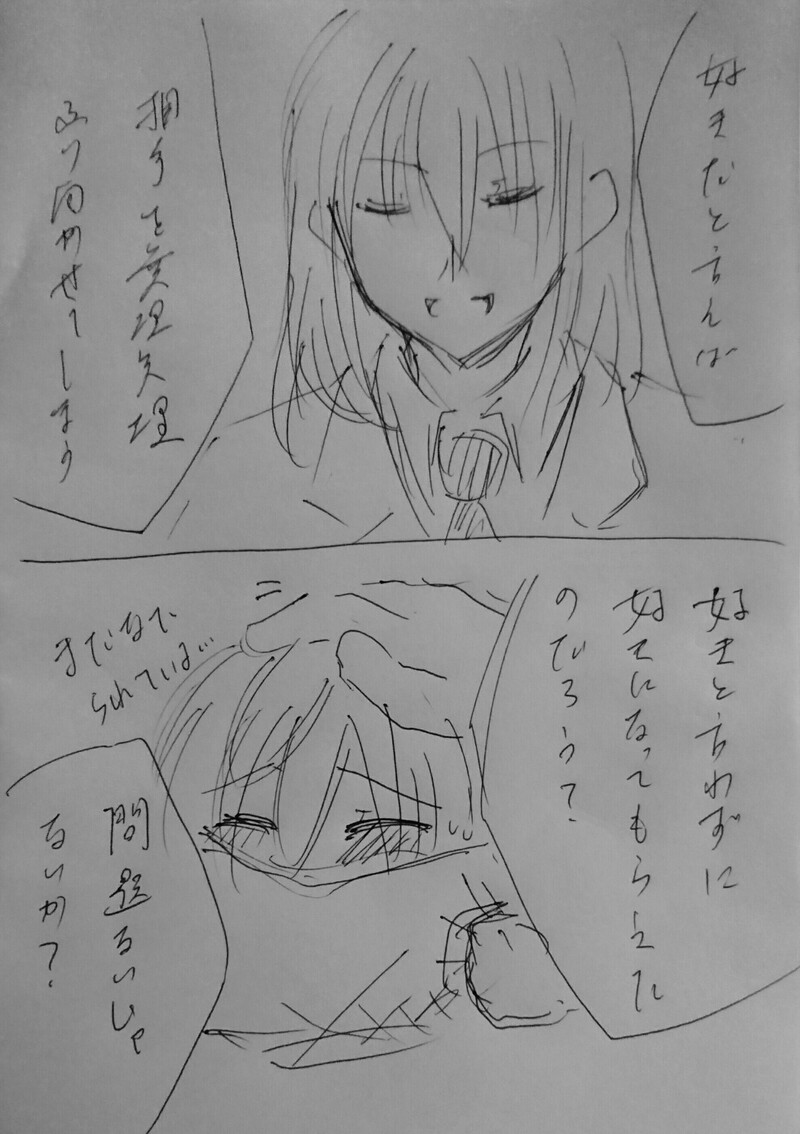 好きだと言えば
相手を無理矢理
ふり向かせてしまう
好きと言わずに
好きになってもらえた
のだろう?
まだなで
られている…
問題ないじゃ
ないか?